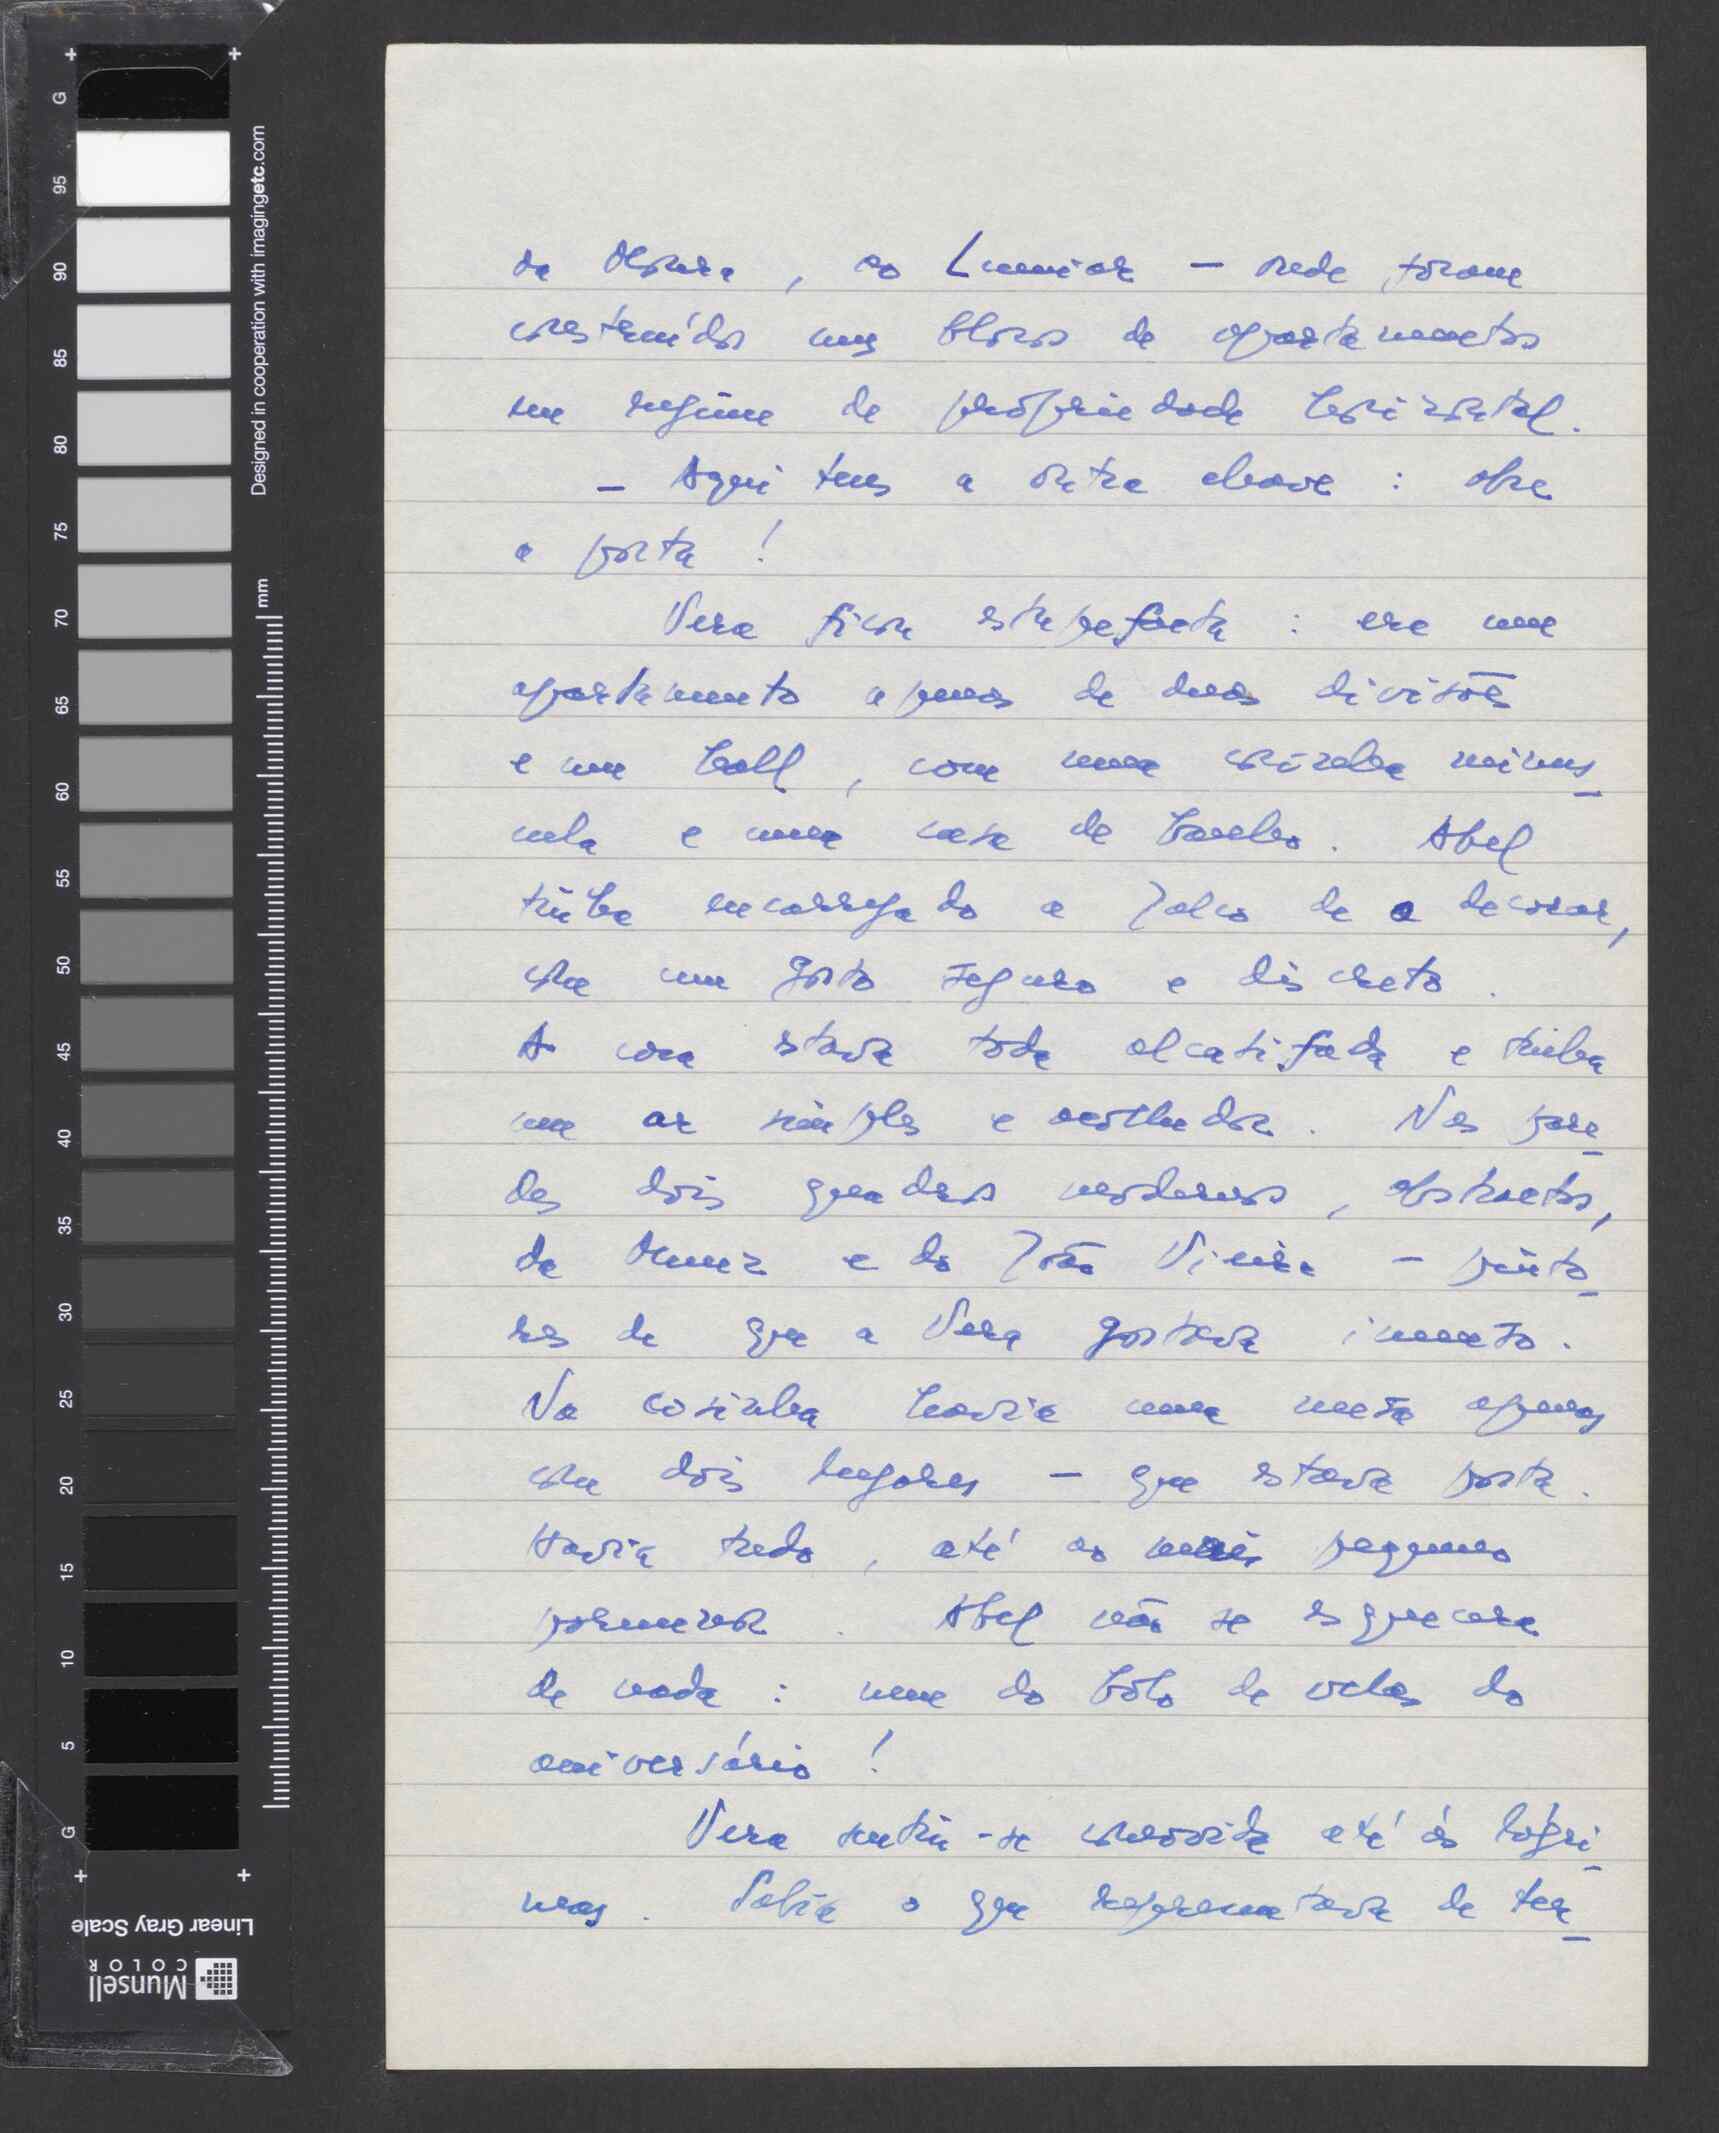 da , ao Lumiar – onde foram
construídos uns blocos de apartamentos
em regime de propriedade horizontal.
– Aqui tens a outra chave : abre
a porta !
Vera ficou estupefacta : era um
apartamento apenas de duas divisões
e um hall, com uma cozinha minus-
cula e uma casa de banho. Abel
tinha encarregado a de o decorar,
com um gosto seguro e discreto.
A casa estava toda alcatifada e tinha
um ar simples e acolhedor. Nas pare-
des dois quadros modernos, abstractos,
da e do João Vieira – pinto-
res de que a Vera gostava imenso.
Na cosinha havia uma mesa apenas
com dois lugares – que estava posta.
Havia tudo, até ao mais pequeno
pormenor. Abel não se esquecera
de nada : nem do bôlo de velas do
aniversário !
Vera sentiu-se comovida até ás lágri-
mas. Sabia o que representava de ter-
G
95
90
85
80
75
70
65
60
55
50
45
40
35
30
25
20
15
10
5
G
Designed in cooperation with imagingetc.com
mm
Linear Gray Scale
Munsell
COLOR